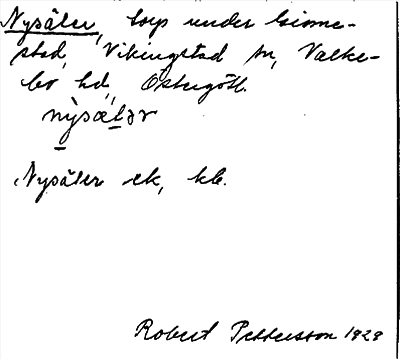 Nysäter, torp under Gisme-
stad, Vikingstad sn, Valke-
bo hd, Östergötl.
nysætər
Nysäter ek, kb.
Robert Pettersson 1929